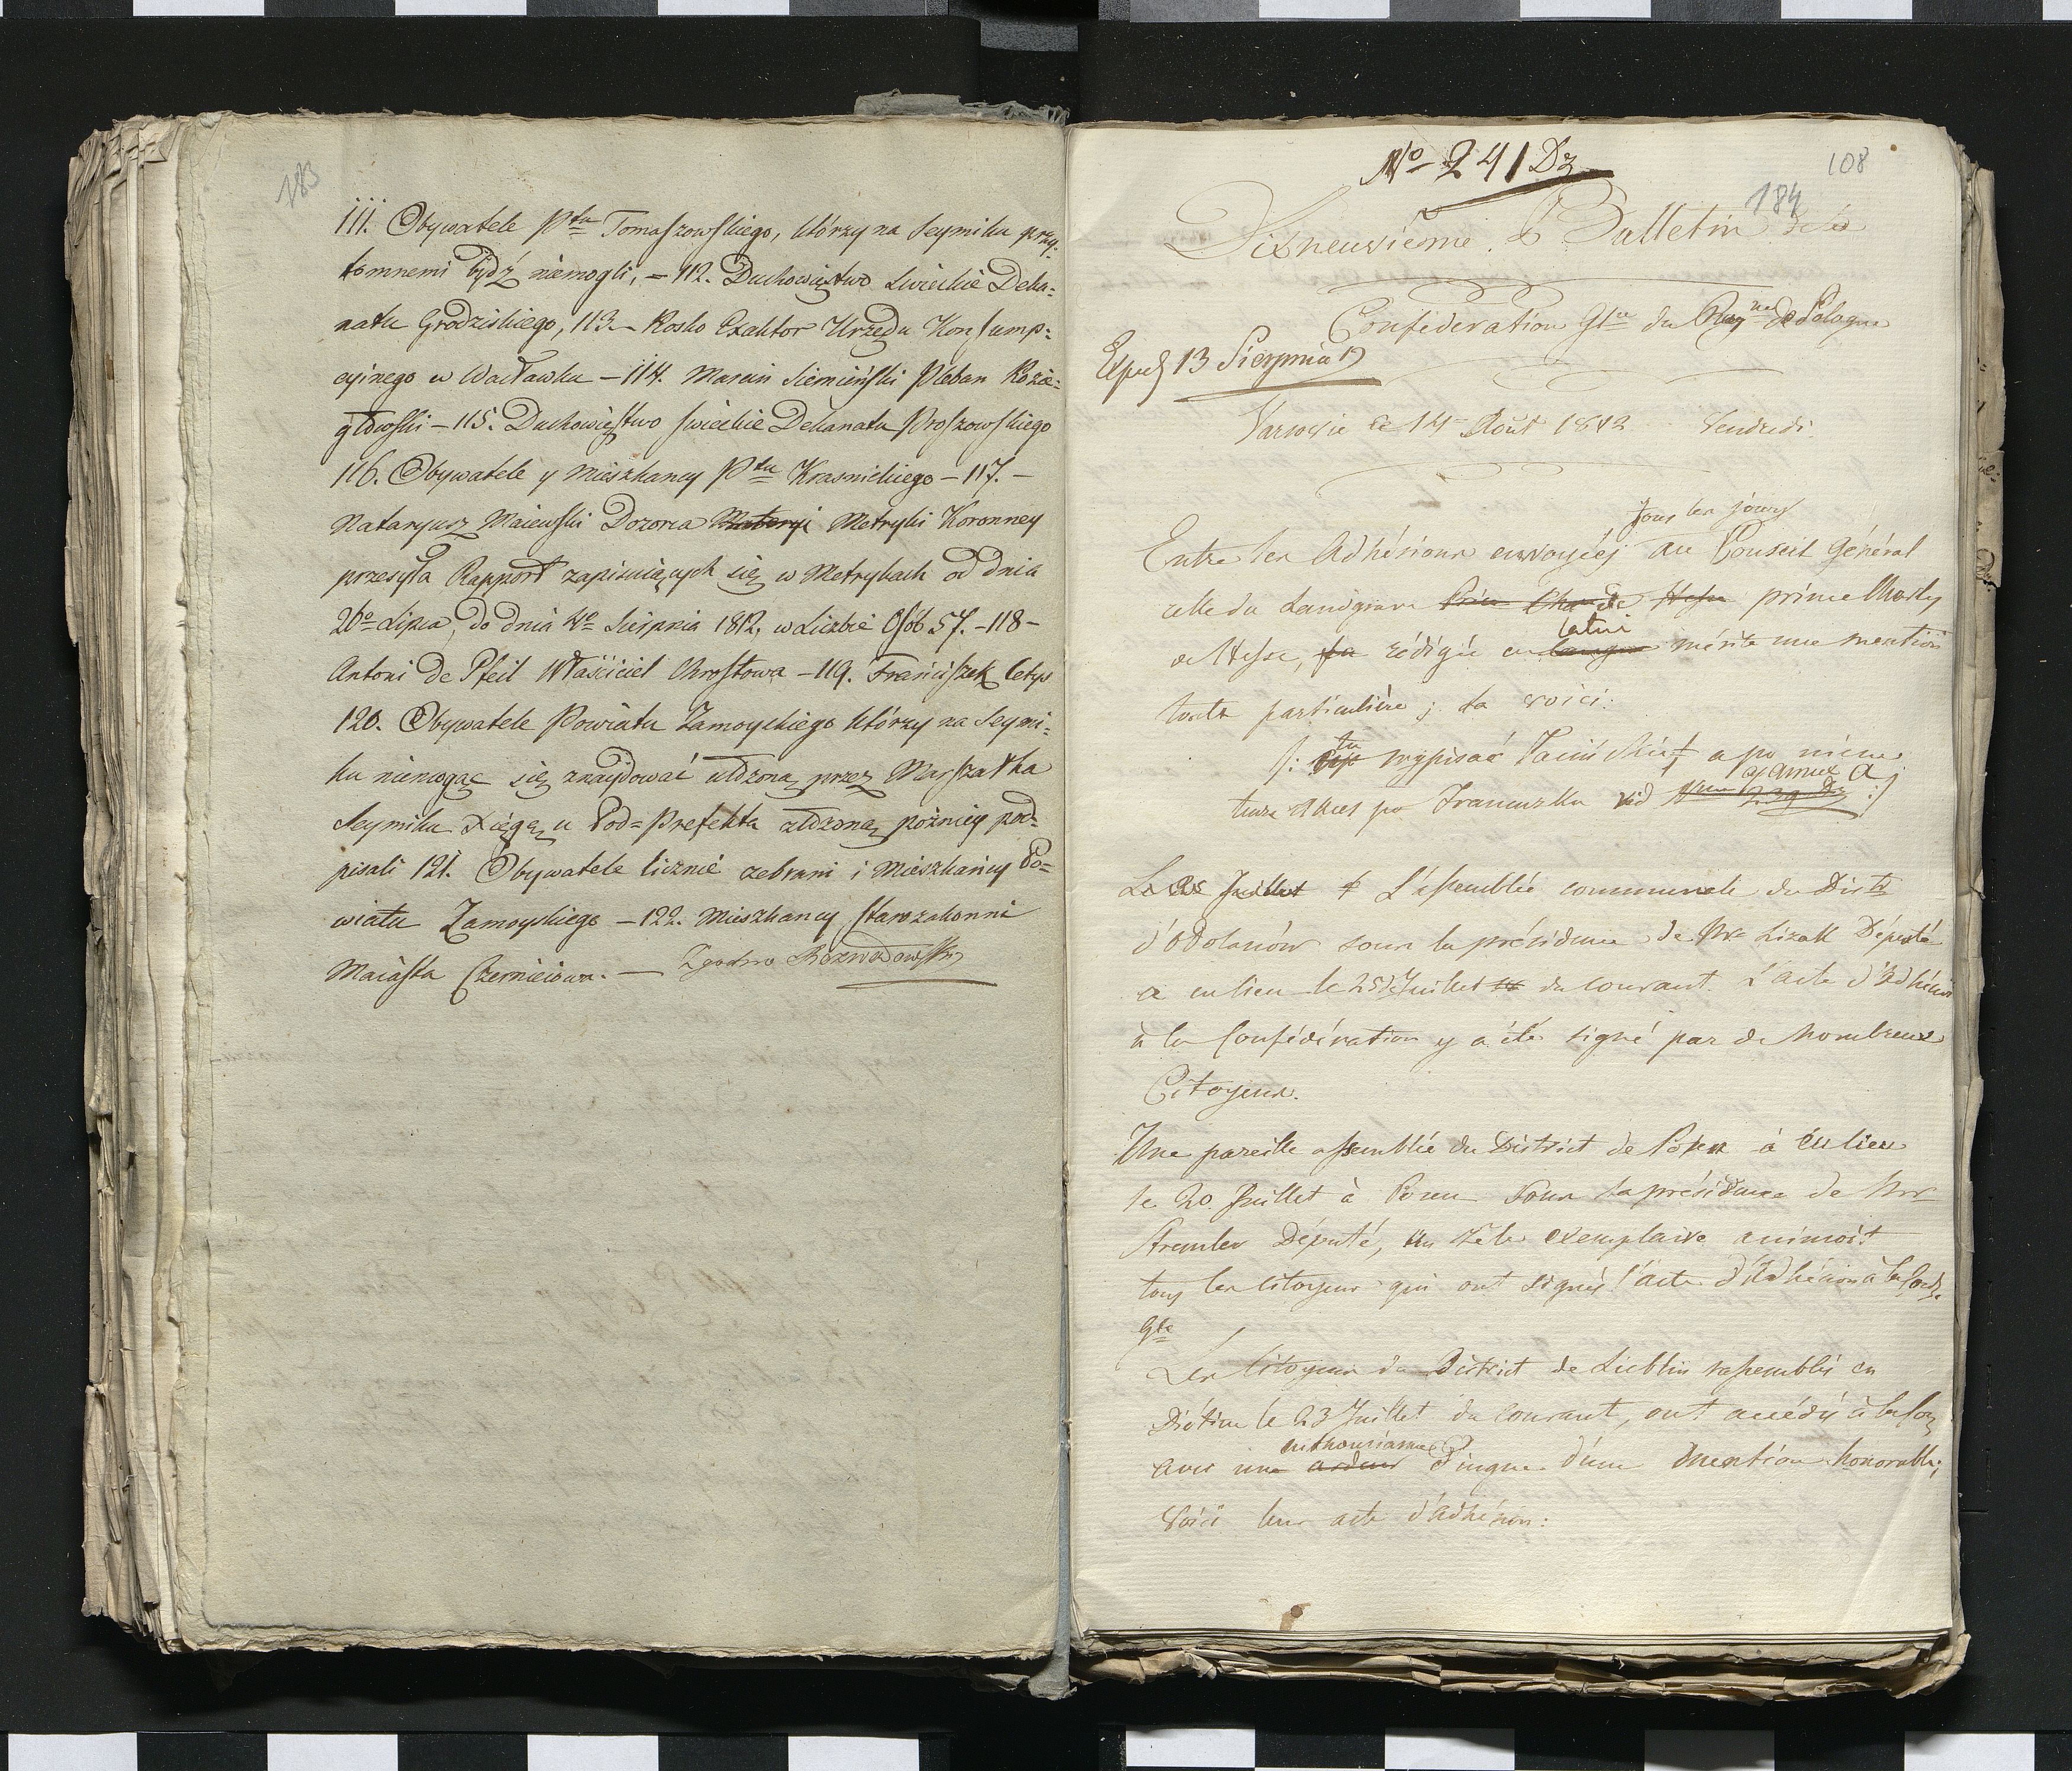 183
111. Obywatele Ptu Tomaszowskiego, którzy na Seymiku przy-
tomnemi bydź niemogli, = 112. Duchowięstwo Swieckie Deka=
natu Grodziskiego, 113. – Rosko Exaktor Urzędu Konsump:
cyinego w Wacławku – 114. Marcin Siemieński Pleban Kozie:
głowski – 115. Duchowięstwo swieckie Dekanatu Proszowskiego
116. Obywatele y Mieszkancy Ptu Krasnickiego – 117. –
Nataryusz Maiewski Dozorca Materyi Metryki Koronney
przesyła Rapport zapisuiących się w Metrykach od dnia
26o Lipca, do dnia 4o Sierpnia 1812, w Liczbie Osób 57. – 118 –
Antoni de Pfeil Właściciel Chrostowa – 119. Franciszek Cetys
120. Obywatele Powiatu Zamoyskiego którzy na Seymi:
ku niemogąc się znaydować złożoną przez Marszałka
Seymiku Xięgą u Pod=Prefekta złożoną poźniey pod=
pisali 121. Obywatele licznie zebrani i Mieszkańcy Po=
wiatu Zamoyskiego – 122. Mieszkancy Starozakonni
Maiasta Czerniciowa. — Zgodno Rozwadowski
No 241 Dz
108
184
Dixneuvième Bulletin de la
Confédération Gle du Roy de Pologne
Exped 13 Sierpnia
Varsovie le 14 Août 1812 Vendredi.
tous les jours
Entre les Adhésions envoyées au Conseil Général
celle du Landgrave de Hesse prince Charles
latin
de Hesse, rédigée en langue mérite une mention
toute particulière; la voici:
tu
/: wypisać Łaciński a po niem
annex A
tenże Akces po Francuzku vid 239 Dz :/
Le 25 Juillet L'assemblée communale du Distr
d'Odolanów sous la présidence de Mr Lizak Député
a eu lieu le 25 Juillet du courant. L'acte d'Adhésion
à la Confédération y a été signé par de nombreux
Citoyens.
Une pareille assemblée du District de Posen à eu lieu
le 20. Juillet à Posen sous la présidence de Mr
Stremler Député, un zèle exemplaire animoit
tous les citoyens qui ont signés l'acte d'Adhésion à la Conf.
Gle
Les Citoyens du District de Lublin rassemblés en
Diétine le 23 Juillet du courant, ont accédé à la Con
enthousiasme
avec une ardeur digne d'une mention honorable;
Voici leur acte d'adhésion: